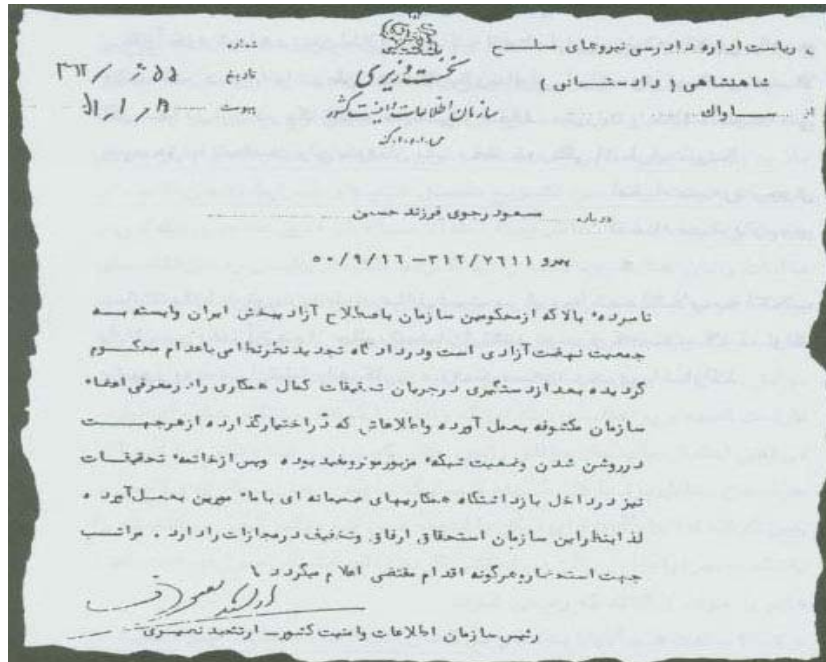 ریاست اداره دادرسی نیروهای مسلح
شاهنشاهی ( دادستانی )
از ساواک
نخست وزیری
سازمان اطلاعات و امنیت کشور
س.ا.و.ا.ک
شماره
تاریخ
پیوست
درباره مسعود رجوی فرزند حسین
پیرو ۳۱۲/۷۶۱۱ – ۵۰/۹/۱۶
نامبرده بالا که از محکومین سازمان باصطلاح آزادیبخش ایران وابسته به
جمعیت نهضت آزادی است و در دادگاه تجدید نظر نظامی باعدام محکوم
گردیده بعد از دستگیری در جریان تحقیقات کمال همکاری را در معرفی اعضاء
سازمان مکشوفه بعمل آورده و اطلاعاتی که در اختیار گذارده از هر جهت
در روشن شدن وضعیت شبکه مزبور موثر و مفید بوده و پس از خاتمه تحقیقات
نیز در داخل بازداشتگاه همکاریهای صمیمانه ای با مامورین بعمل آورده
لذا بنظر این سازمان استحقاق ارفاق و تخفیف در مجازات را دارد . مراتب
جهت استحضار و هرگونه اقدام مقتضی اعلام میگردد
رئیس سازمان اطلاعات و امنیت کشور – ارتشبد نصیری